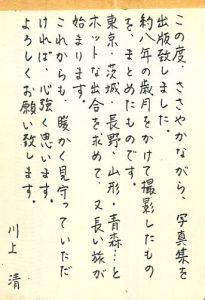 この度、ささやかながら、写真集を
出版致しました。
約八年の歳月をかけて撮影したもの
を、まとめたものです。
東京・茨城・長野・山形・青森…と
ホットな出合を求めて、又長い旅が
始まります。
これからも、暖かく見守っていただ
ければ、心強く思います。
よろしくお願い致します。
川上 清